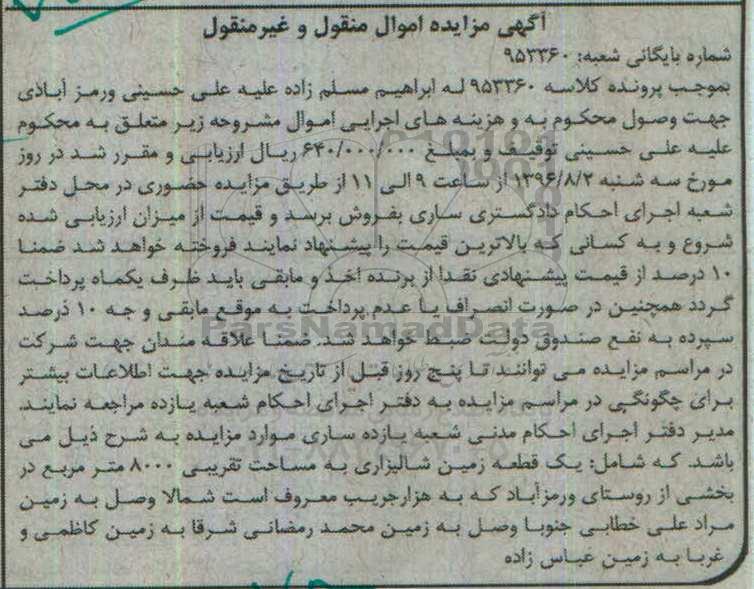 آگهی مزایده اموال منقول و غیرمنقول
شماره بایگانی شعبه: ۹۵۳۳۶۰
بموجب پرونده کلاسه ۹۵۳۳۶۰ له ابراهیم مسلم زاده علیه علی حسینی ورمز آبادی
جهت وصول محکوم به و هزینه های اجرایی اموال مشروحه زیر متعلق به محکوم
علیه علی حسینی توقیف و بمبلغ ۶۴۰/۰۰۰/۰۰۰ ریال ارزیابی و مقرر شد در روز
مورخ سه شنبه ۱۳۹۶/۸/۲ از ساعت ۹ الی ۱۱ از طریق مزایده حضوری در محل دفتر
شعبه اجرای احکام دادگستری ساری بفروش برسد و قیمت از میزان ارزیابی شده
شروع و به کسانی که بالاترین قیمت را پیشنهاد نمایند فروخته خواهد شد ضمنا
۱۰ درصد از قیمت پیشنهادی نقدا از برنده اخذ و مابقی باید ظرف یکماه پرداخت
گردد همچنین در صورت انصراف یا عدم پرداخت به موقع مابقی و جه ۱۰ درصد
سپرده به نفع صندوق دولت ضبط خواهد شد. ضمنا علاقه مندان جهت شرکت
در مراسم مزایده می توانند تا پنج روز قبل از تاریخ مزایده جهت اطلاعات بیشتر
برای چگونگی در مراسم مزایده به دفتر اجرای احکام شعبه یازده مراجعه نمایند.
مدیر دفتر اجرای احکام مدنی شعبه یازده ساری موارد مزایده به شرح ذیل می
باشد. که شامل: یک قطعه زمین شالیزاری به مساحت تقریبی ۸۰۰۰ متر مربع در
بخشی از روستای ورمزآباد که به هزارجریب معروف است شمالا وصل به زمین
مراد علی خطابی جنوبا وصل به زمین محمد رمضانی شرقا به زمین کاظمی و
غربا به زمین عباس زاده
ParsNamadData